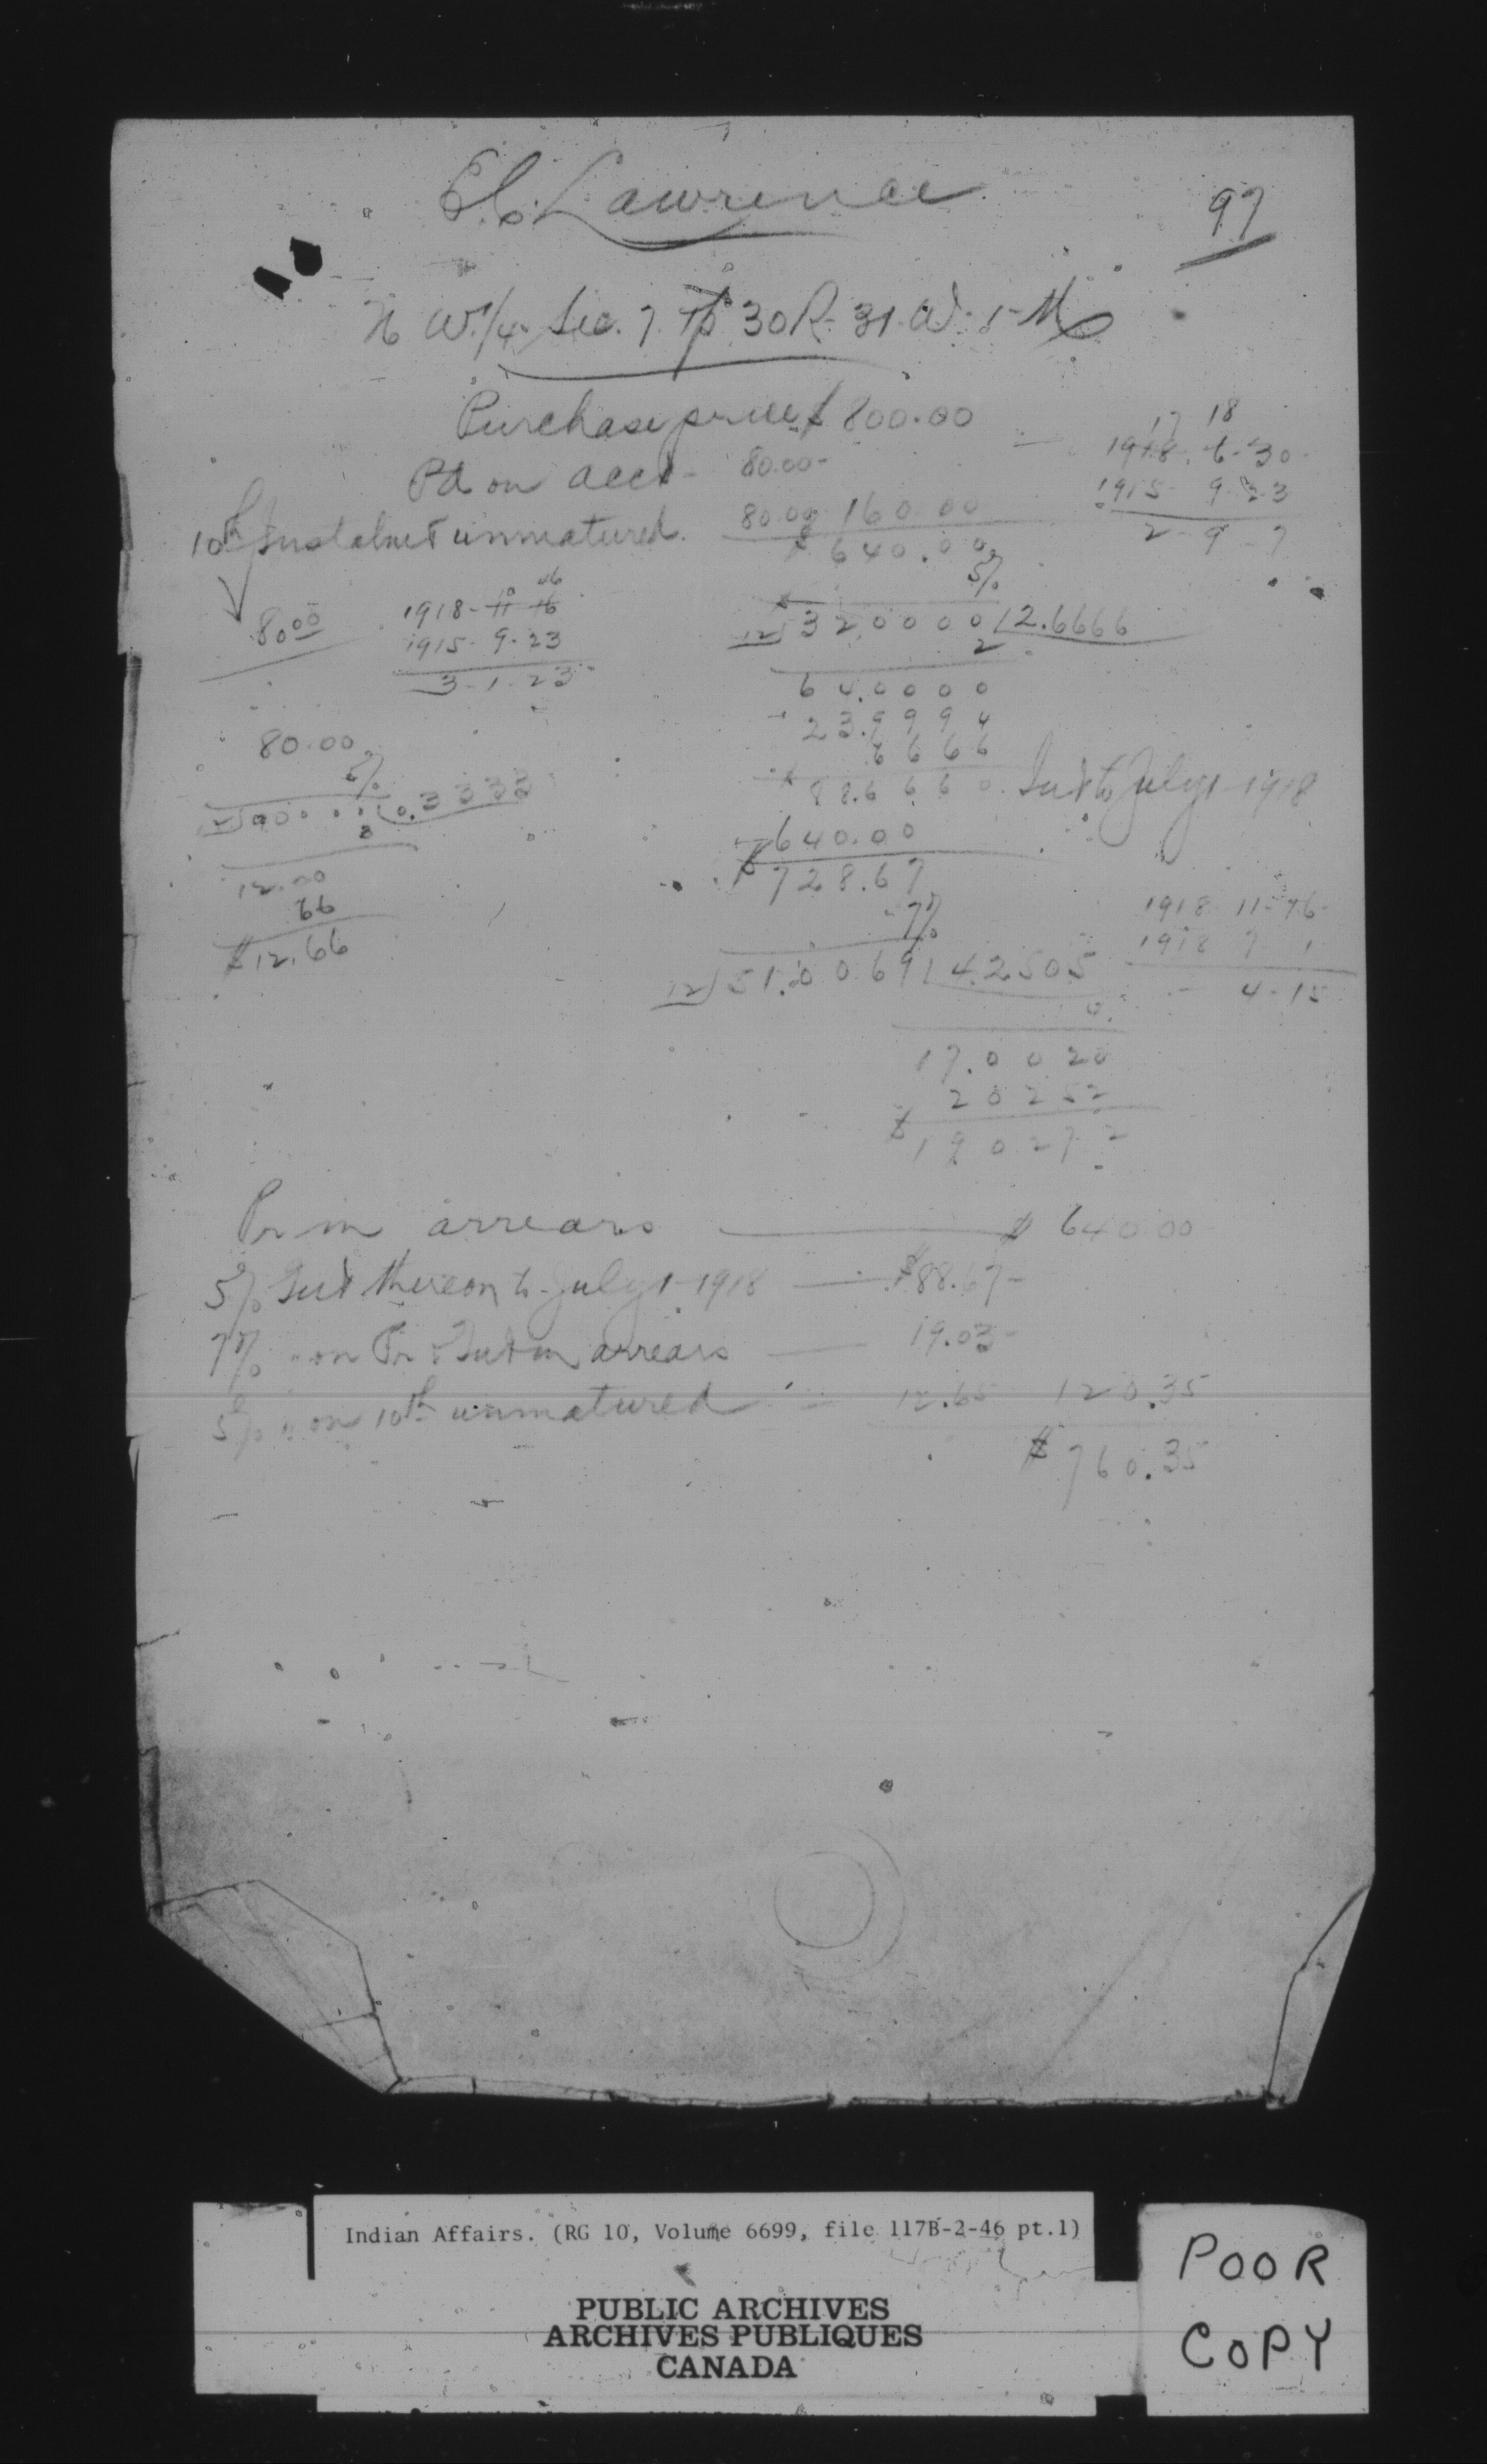 E.C. Lawrence
97
N W. 1/4 Sec. 7 Tp 30 R. 31. W. 1 M
Purchase price $ 800.00
Pd on acct - 80.00 -
10th Instalmet unmatured. 80.00 160.00
$ 640.00
5%
17 18
1918. 6-30-
1915 9 23
2 - 9 - 7
80.00
10 06
1918 - 11 16
1915 - 9 - 23
3 - 1 - 23
12) 32 0000 (2.6666
2
64.0000
23.9994
6666
$ 88.6660 Int to July 1 1918
640.00
$ 728.67
7%
80.00
5%
0.3333
12.00
66
$12.66
1918 11-16-
1918 7 1
4-15
12) 51.0069 (4.2505
17.0020
2 0252
$ 19 0272
Pr in arrears $ 640.00
5% Int thereon to July 1 - 1918 $88.67 -
7% " on Pr & Int in arrears 19.03 -
5% " on 10th unmatured 12.65 120.35
$ 760.35
Indian Affairs. (RG 10, Volume 6699, file 117B-2-46 pt.1)
PUBLIC ARCHIVES
ARCHIVES PUBLIQUES
CANADA
POOR
COPY